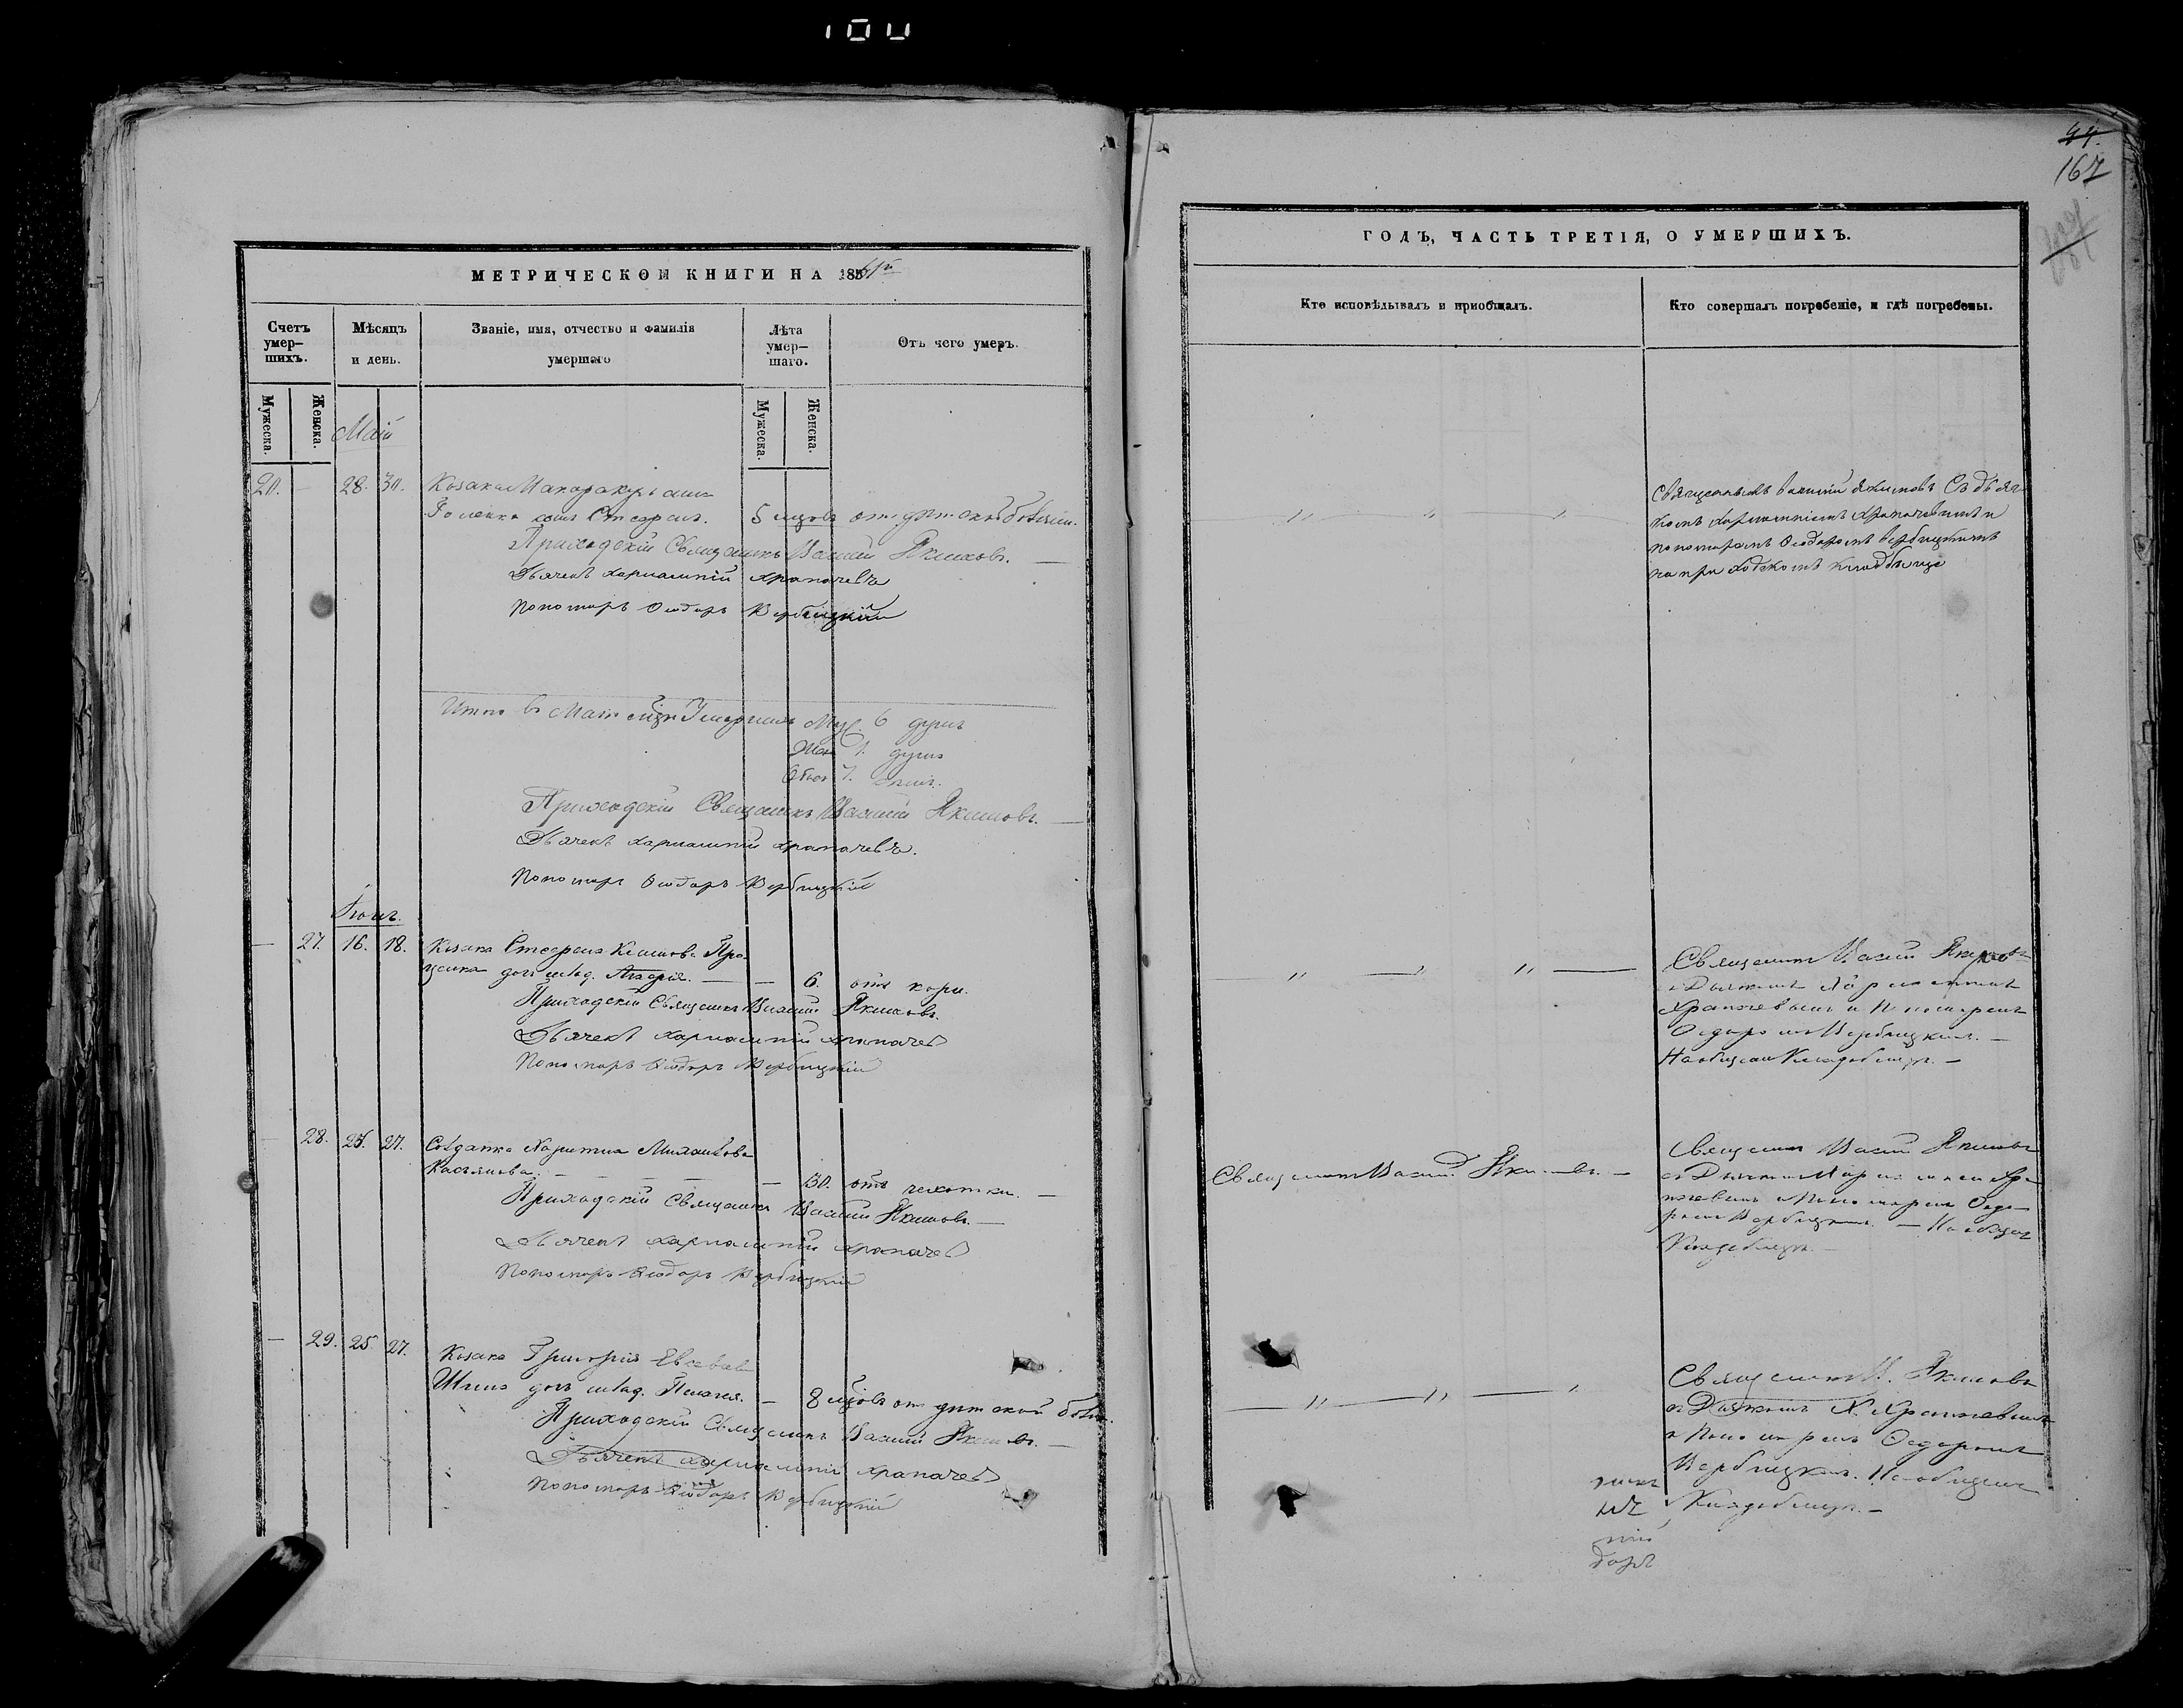 44.
167
МЕТРИЧЕСКОЙ КНИГИ НА 1861й
Счетъ умер-шихъ.
Мѣсяцъ и день.
Званіе, имя, отчество и фамилія умершаго
Лѣта умер-шаго.
Отъ чего умеръ.
Мужеска.
Женска.
Мужеска.
Женска.
Май
20. — 28. 30. Козака Макара
сынъ Стефанъ. 5 мцовъ отъ дѣтской болѣзни.
Приходскій Священникъ Василій Якимовъ. —
Дьячекъ Харлампій Храпачевъ
Пономарь Ѳеодоръ Вербицкій
Итого въ Маѣ мцѣ Умерших Муж 6 душъ
Жен 1. душа
Обоег 7.
Приходскій Священникъ Василій Якимовъ. —
Дьячекъ Харлампій Храпачевъ.
Пономарь Ѳеодоръ Вербицкій
Іюнь.
— 27. 16. 18. Козака Стефана Климова Про-
ценка дочь млад. Марія. — — 6. отъ кори.
Приходскій Священникъ Василій Якимовъ.
Дьячекъ Харлампій Храпачев
Пономарь Ѳеодоръ Вербицкій
28. 25. 27. Солдатка Харитина Михайлова
Касьянова. — — — 30. отъ чахотки. —
Приходскій Священникъ Василій Якимовъ. —
Дьячекъ Харлампій Храпачев
Пономарь Ѳеодоръ Вербицкій
— 29. 25 27. Козака Григорія
дочь млад. Пелагея. — 8 мцовъ от дѣтской болѣз.
Приходскій Священникъ Василій Якимовъ. —
Дьячекъ Харлампій Храпачев
Пономарь Ѳеодоръ Вербицкій
ГОДЪ, ЧАСТЬ ТРЕТІЯ, О УМЕРШИХЪ.
Кто исповѣдывалъ и пріобщалъ.
Кто совершалъ погребеніе, и гдѣ погребены.
Священникъ Василій Якимовъ Съ дьяч-
комъ Харлампіемъ Храпачевымъ и
пономаремъ Ѳеодоромъ Вербицкимъ
на приходскомъ кладбище
Священникъ Василій Якимовъ
съ Дьячкомъ Харлампіемъ
Храпачевымъ и Пономаремъ
Ѳедоромъ Вербицкимъ. —
На общемъ Кладбищѣ. —
Священникъ Василій Якимовъ. —
Священникъ Василій Якимовъ
съ Дьячкомъ Харлампіемъ Хра-
пачевымъ и Пономаремъ Ѳедо-
ромъ Вербицкимъ. — На общемъ
Кладбищѣ. —
Священникъ В. Якимовъ
съ Дьячкомъ Х. Храпачевымъ
и Пономаремъ Ѳедоромъ
Вербицкимъ. На общемъ
Кладбищѣ. —